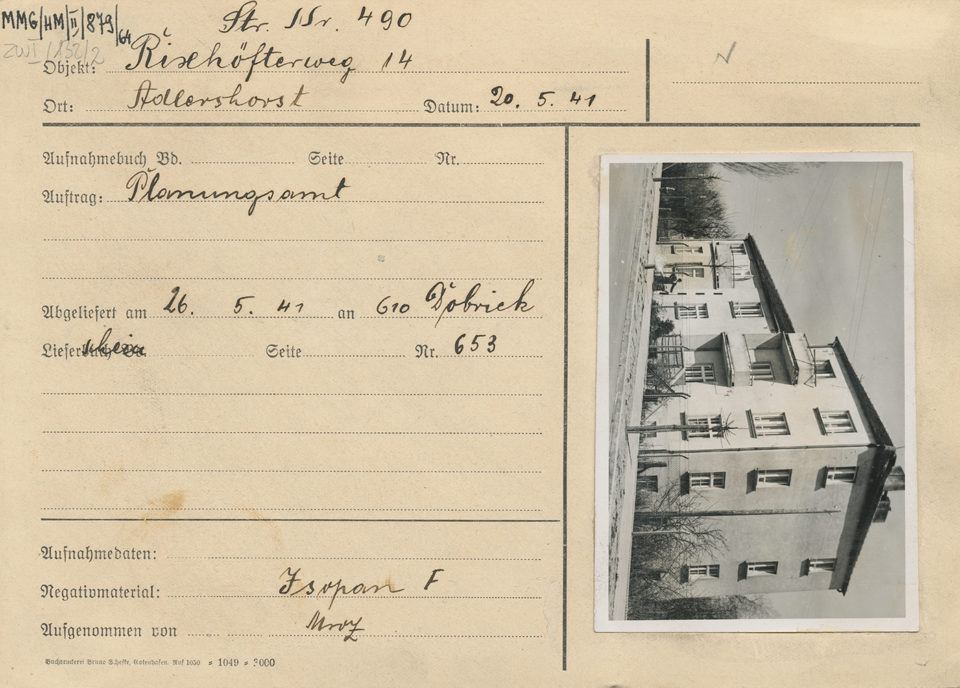 MMG/HM/II/879/64
Str. Nr. 490
ZWI/132/2
Objekt: Rixhöfterweg 14
Ort: Adlershorst Datum: 20. 5. 41
Aufnahmebuch Bd. Seite Nr.
Auftrag: Planungsamt
Abgeliefert am 26. 5. 41 an 610 Dobrick
Liefer Seite Nr. 653
Aufnahmedaten:
Negativmaterial: Isopan F
Aufgenommen von Mroz
Buchdruckerei Bruno Gotenhafen. Ruf 1050 * 1049 * 3000